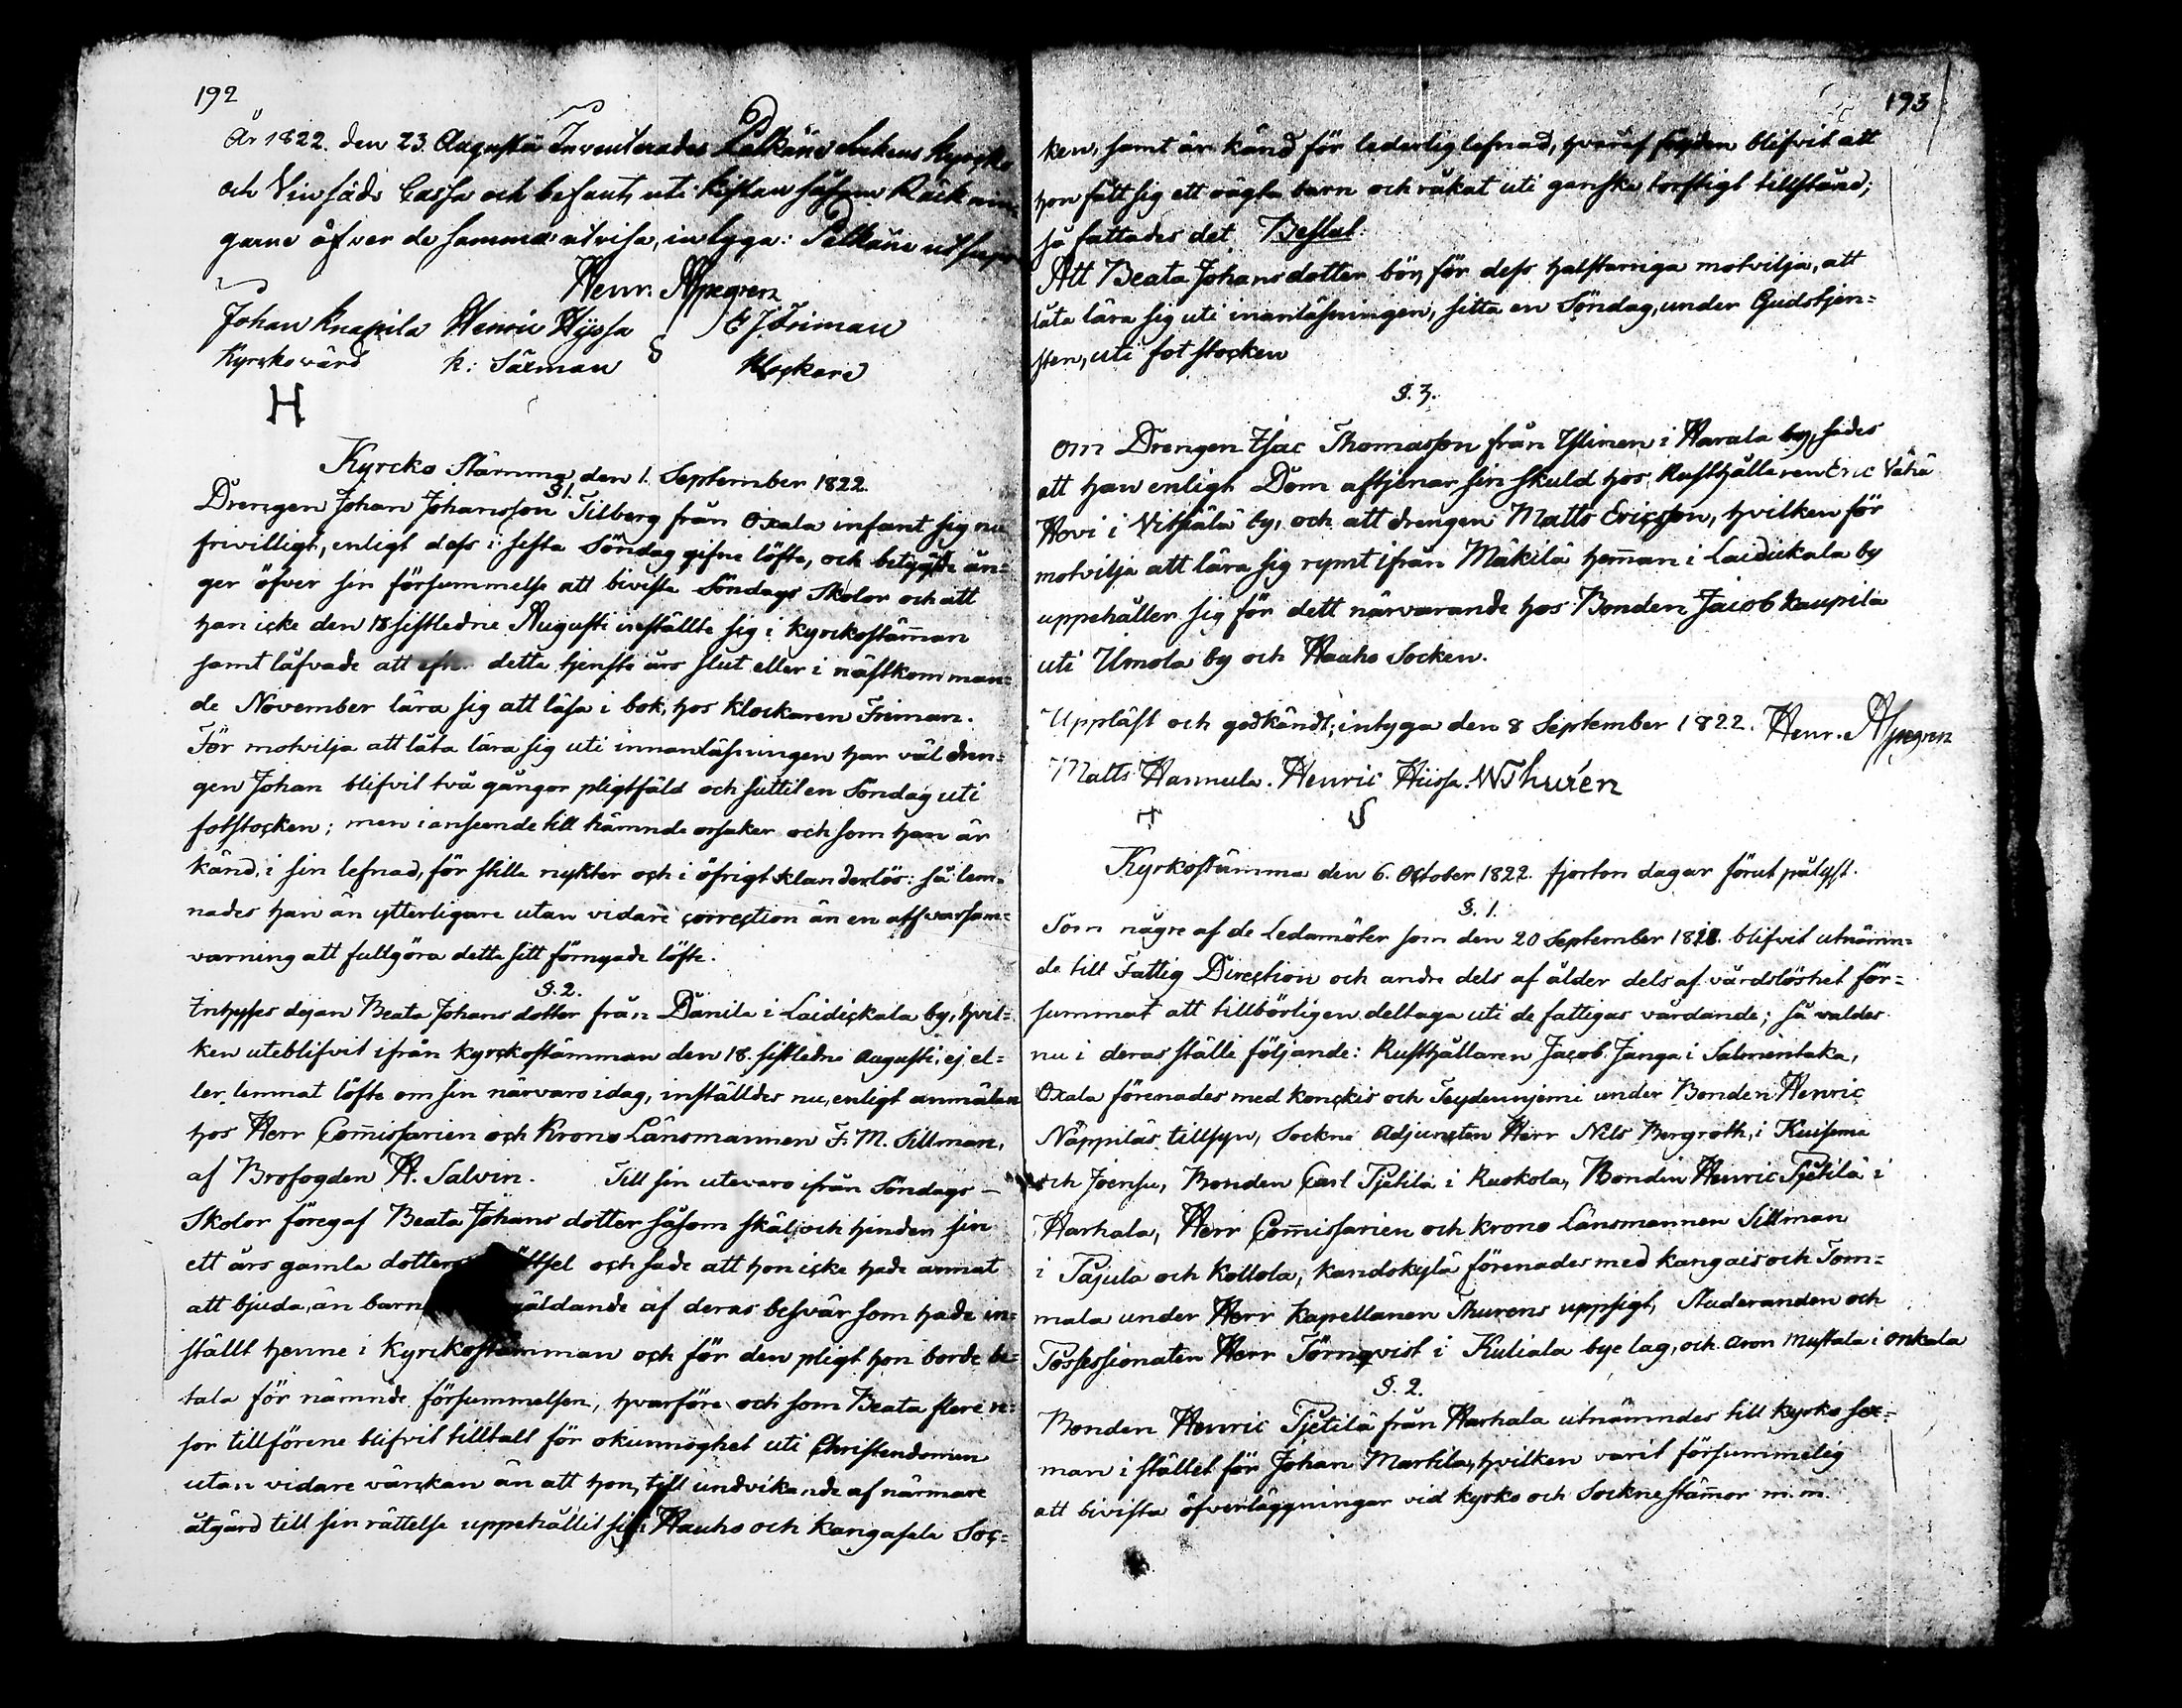 192
År 1822. den 23. Augusti Inventerades Pelkäne Sockens Kyrcko
och Vinsäds Cassa och befants uti Kistan såsom Räck nin
garne öfver de samma utvisa, intyga: Pelkäne ut supra
Henr. Alpegren
Johan Knapila Henric Hyssa E J Friman
Kyrkovärd k: Säxman Klockare
H
Kyrcko Stämma den 1. September 1822.
§ 1.
Drengen Johan Johansson Tilberg från Oxala infant sig nu
frivilligt, enligt dess i sista Söndag gifne löfte, och betygade ån=
ger öfver sin försummelse att bivista Söndags Skolor och att
han icke den 18 sistledne Augusti inställte sig i Kyrckostämman
samt låfvade att efter detta tjenste års slut eller i nästkomman=
de November lära sig att läsa i bok, hos Klockaren Friman.
För motvilja att låta lära sig uti innanläsningen har väl dren=
gen Johan blifvit två gångor pligtfäld och suttit en Söndag uti
fotstocken; men i anseende till nämnde orsaker och som han är
känd, i sin lefnad, för stilla nykter och i öfrigt klanderlös: så lem=
nades han än ytterligare utan vidare correction än en alfvarsam=
varning att fullgöra detta sitt förnyade löfte.
§. 2.
Inhyses dejan Beata Johans dotter från Danila i Laidickala by, hvil=
ken uteblifvit ifrån Kyrckostämman den 18. sistledne Augusti, ej el=
ler lemnat löfte om sin närvaro idag, inställdes nu, enligt anmälan
hos Herr Com̄issarien och Krono Länsmannen F. M. Sillman,
af Brofogden H. Salvin. Till sin utevaro ifrån Söndags
Skolor föregaf Beata Johans dotter såsom skäl och hinder sin
ett års gamla dotters skötsel och sade att hon icke hade annat
att bjuda, än barn gäldande af deras besvär som hade in=
ställt henne i Kyrckostämman och för den pligt hon borde be=
tala för nämnde försummelsen, hvarföre och som Beata flere re=
sor tillförene blifvit tilltalt för okunnoghet uti Christendomen
utan vidare värckan än att hon, till undvikande af närmare
åtgärd till sin rättelse uppehållit sig i Hauho och Kangasala Soc=
193
ken, samt är känd för lederlig lefnad, hvaraf följden blifvit att
hon fått sig ett oägta barn och råkat uti ganska torftigt tillstånd;
så fattades det Beslut:
Att Beata Johansdotter bör, för dess halstarriga motvilja, att
låta lära sig uti innanläsningen, sitta en Söndag, under Gudstjen=
sten, uti fotstocken
§. 3.
Om Drengen Isac Thomasson från Ylinen i Harala by, sades
att han enligt Dom aftjenar sin skuld hos Rusthållaren Eric Vähä
Hovi i Vitsiälä by, och att drengen Matts Ericsson, hvilken för
motvilja att lära sig rymt ifrån Mäkilä hem̄an i Laidickala by
uppehåller sig för dett närvarande hos Bonden Jacob Kaupila
uti Ilmola by och Hauho Socken.
Uppläst och godkändt; intyga den 8 September 1822. Henr. Alpegren
Matts Hannula. Henric Hiissa. N Thurén
Kyrkostämma den 6. October 1822. fjorton dagar förut pålyst.
§. 1.
Som någre af de Ledamöter som den 20 September 1818. blifvit utnämn=
de till Fattig Direction och andre dels af ålder dels af vårdslöshet för=
summat att tillbörligen deltaga uti de fattigas vårdande; så valdes
nu i deras ställe följande: Rusthållaren Jacob Janga i Salmentaka,
Oxala förenades med Konckis och Teydennjemi under Bonden Henric
Näppiläs tillsyn, Sockne Adjuncten Herr Nils Bergroth, i Kuisema
och Joensu, Bonden Carl Pjetilä i Ruokola, Bonden Henric Pjetilä i
Harhala, Herr Com̄issarien och Krono Länsmannen Sillman
i Pajula och Kollola, Kandokylä förenades med Kangais och Tom=
mala under Herr Kapellanen Thurens uppsigt, Studeranden och
Possessionaten Herr Törnqvist i Kuliala bye lag, och Aron Mustala i Onkala
§. 2.
Bonden Henric Pjetilä från Harhala utnämndes till Kyrko sex=
man i stället för Johan Martila, hvilken varit försummelig
att bivista öfverläggningar vid Kyrko och Socknestäm̄or m.m.